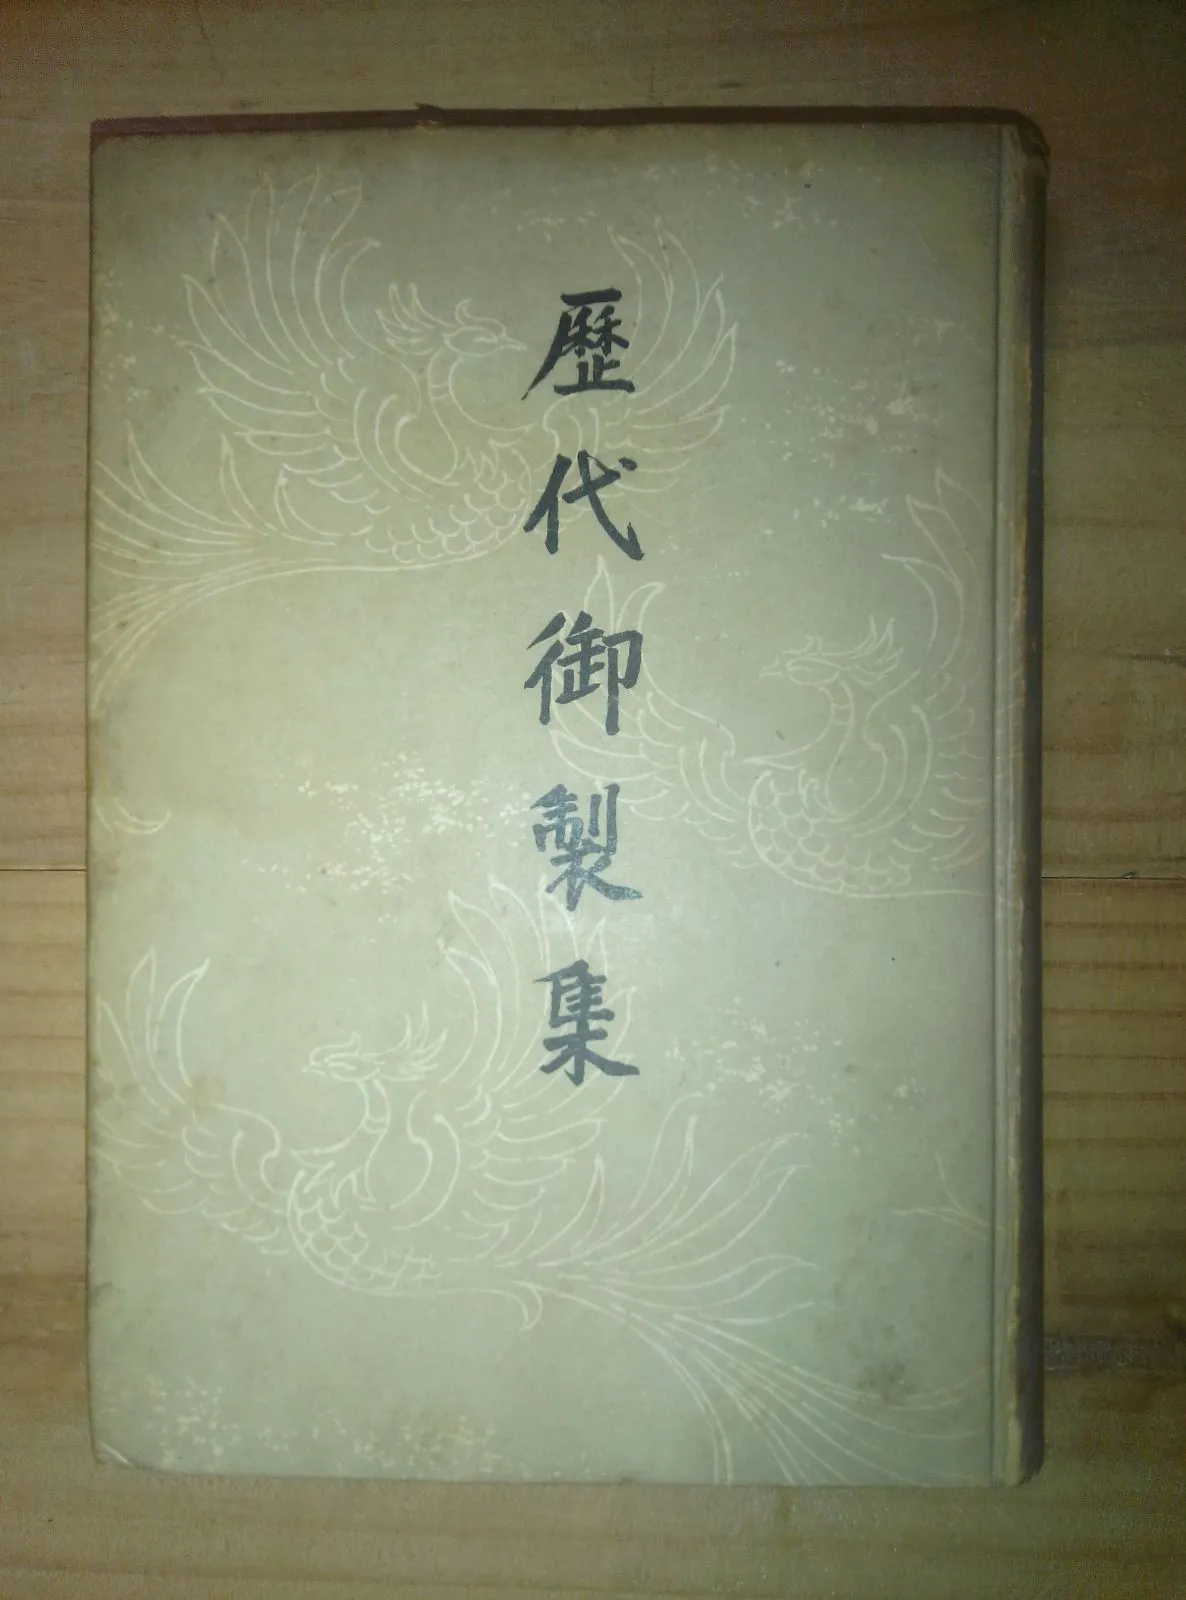 歷代御製集